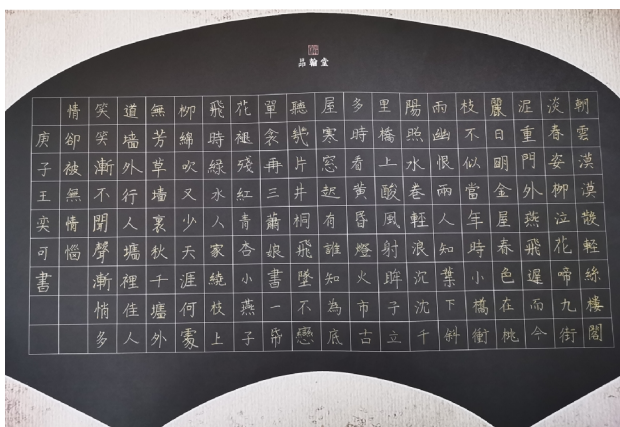 翰堂
朝雲漠漠散輕絲樓閣
淡春姿柳泣花啼九街
泥重門外燕飛遲而今
麗日明金屋春色在桃
枝不似當年時小橋衝
雨幽恨兩人知葉下斜
陽照水卷輕浪沉沈千
里橋上酸風射眸子立
多時看黃昏燈火市古
屋寒窓起有誰知為底
聽幾片井桐飛墜不戀
單衾再三蕭娘書一帋
花褪殘紅青杏小燕子
飛時綠水人家繞枝上
柳綿吹又少天涯何處
無芳草墙裏秋千墻外
道墙外行人墻裡佳人
笑笑漸不聞聲漸悄多
情卻被無情惱
庚子王奕可書